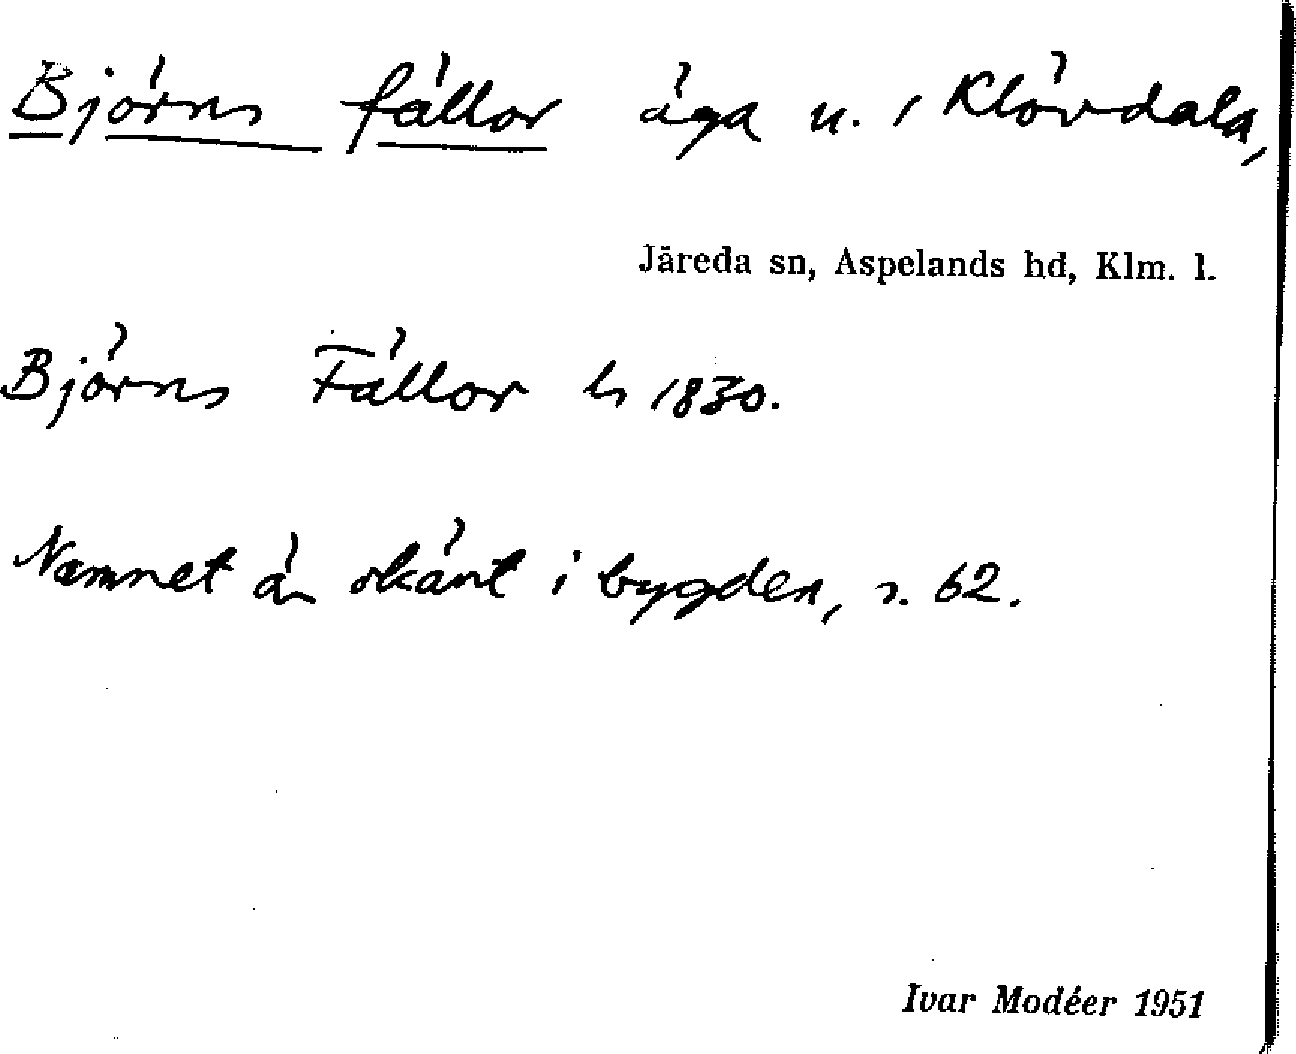 Björns fällor äga u. i Klövdala,
Järeda sn, Aspelands hd, Klm. l.
Björns Fällor ls 1830.
Namnet är okänt i bygden, s. 62.
Ivar Modéer 1951